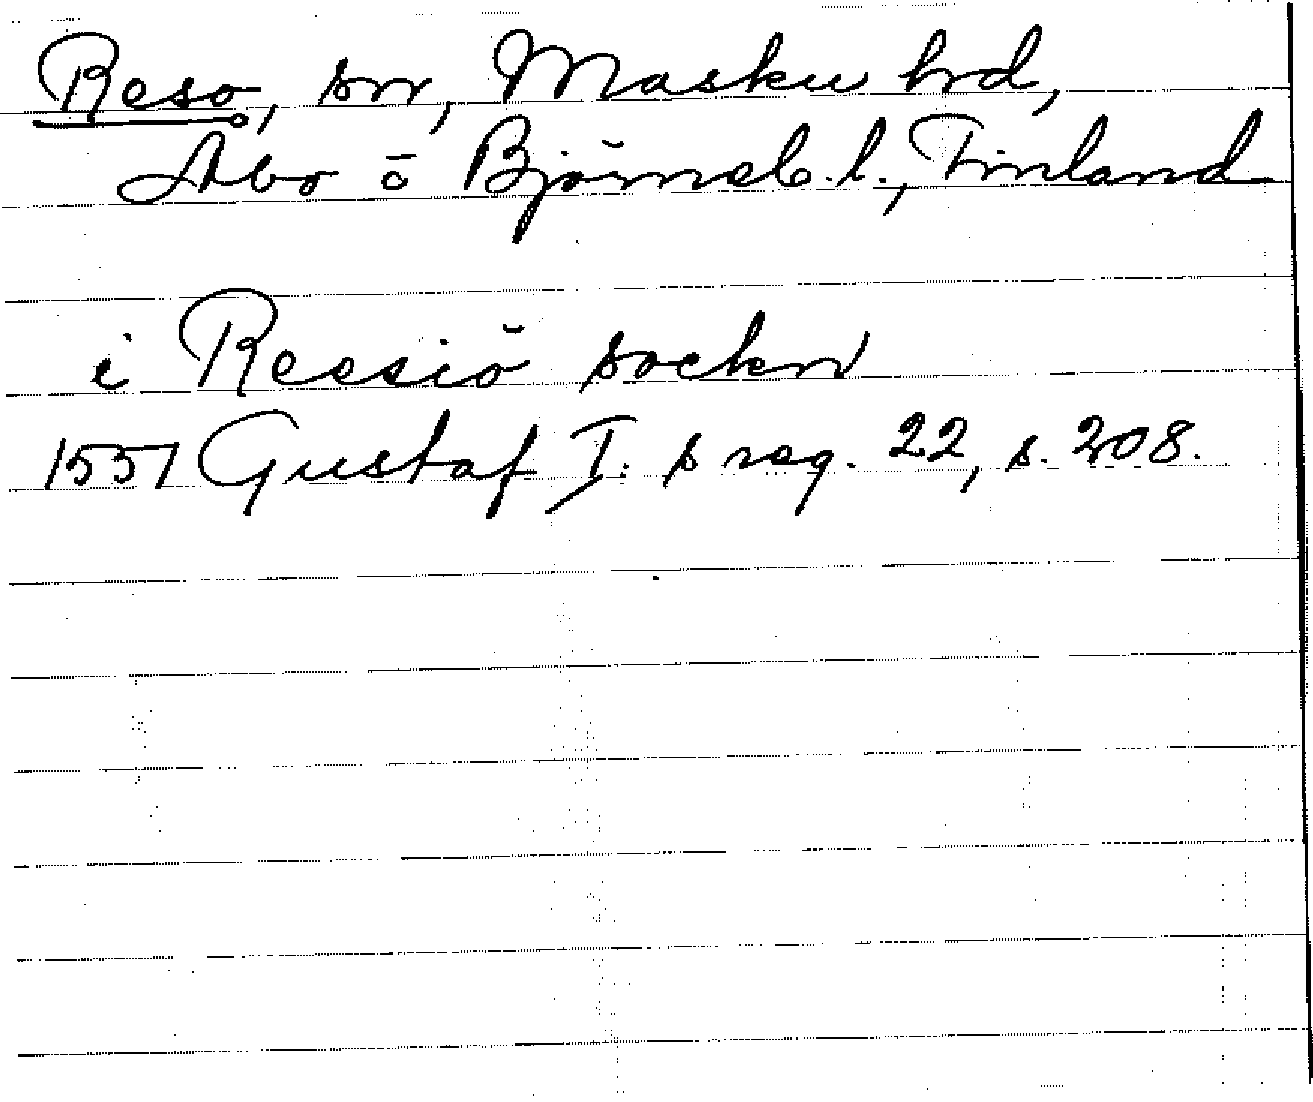 Reso, sn, Masku hd,
Åbo o Björneb. l., Finland
i Reesiö sockn
1551 Gustaf I:s reg. 22, s. 208.